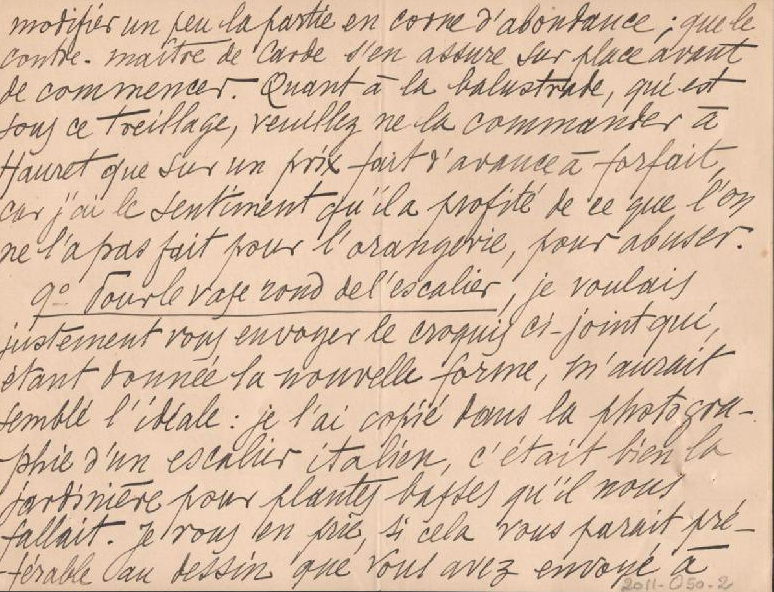 modifier un peu la partie en corne d'abondance ; que le
contre-maître de Carde s'en assure sur place avant
de commencer. Quant à la balustrade, qui est
sous ce treillage, veuillez ne la commander à
Hauret que sur un prix fait d'avance à forfait,
car j'ai le sentiment qu'il a profité de ce que l'on
ne l'a pas fait pour l'orangerie, pour abuser.
9º Pour le vase rond de l'escalier, je voulais
justement vous envoyer le croquis ci-joint qui,
étant donnée la nouvelle forme, m'aurait
semblé l'idéale : je l'ai copié dans la photogra-
phie d'un escalier italien, c'était bien la
jardinière pour plantes basses qu'il nous
fallait. Je vous en prie, si cela vous parait pré-
férable au dessin que vous avez envoyé à
2011-050-2